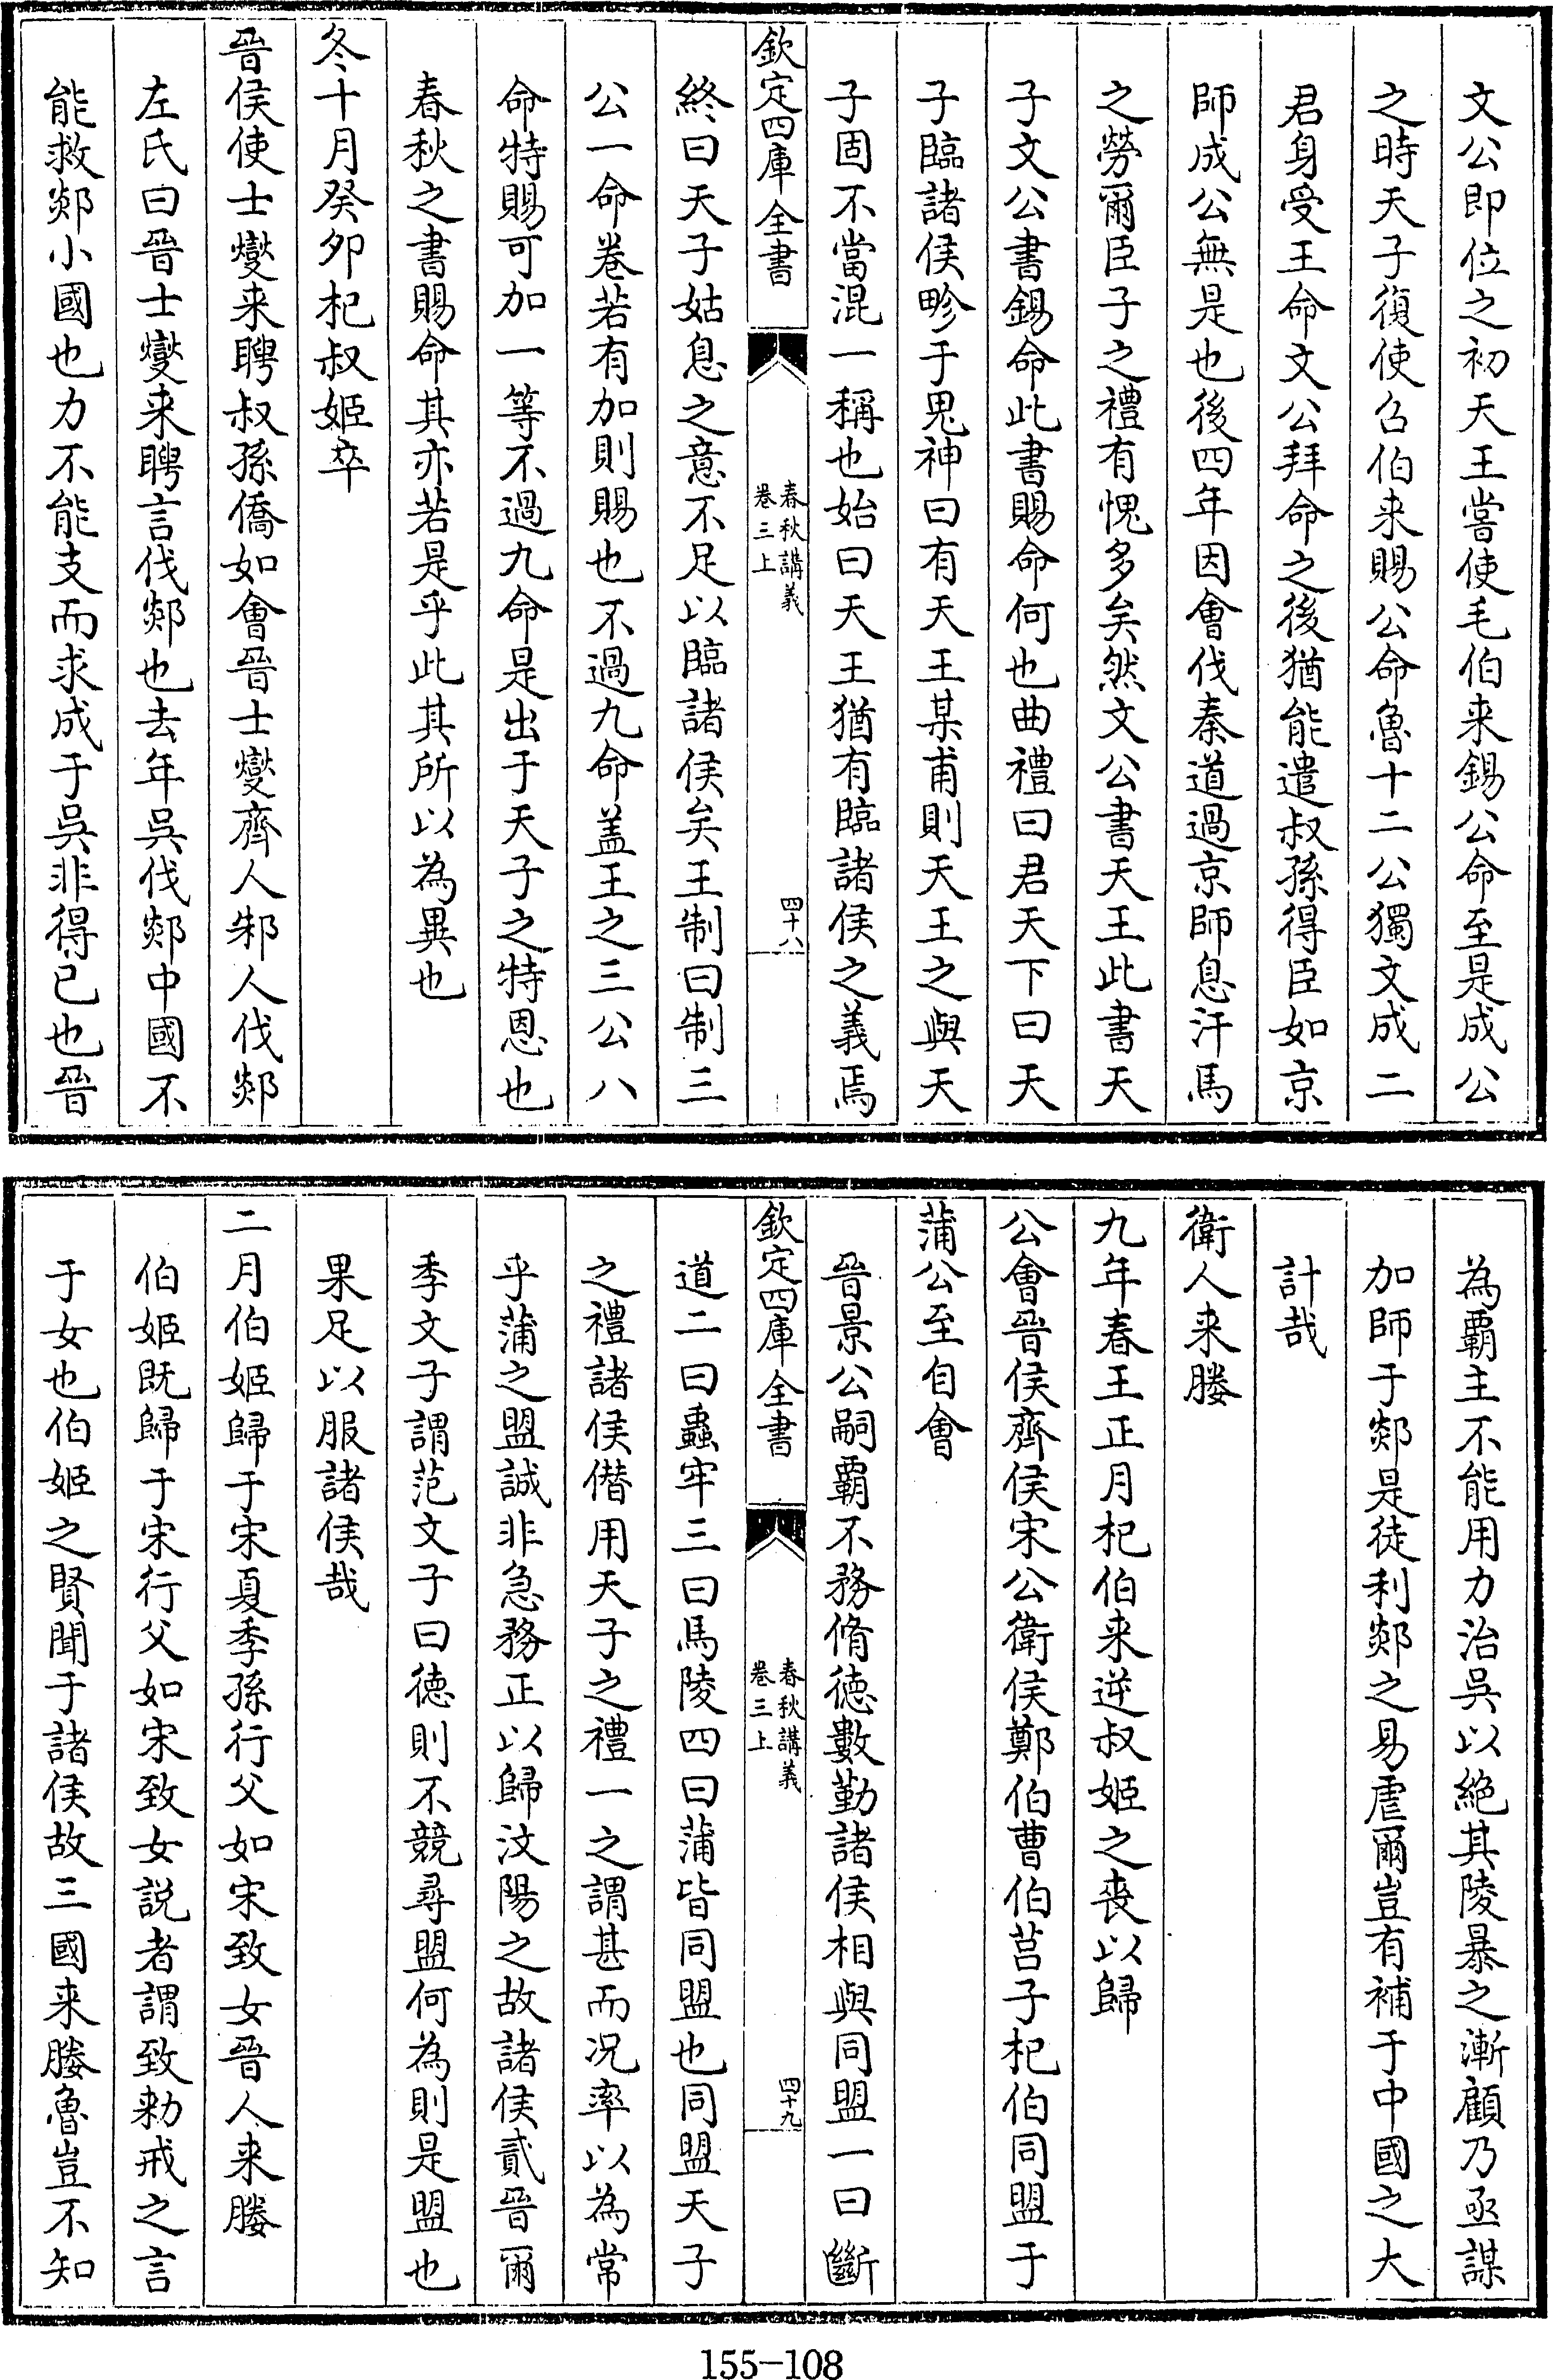 文公即位之初天王嘗使毛伯来錫公命至是成公
之時天子復使召伯来賜公命魯十二公獨文成二
君身受王命文公拜命之後猶能遣叔孫得臣如京
師成公無是也後四年因會伐秦道過京師息汗馬
之勞爾臣子之禮有愧多矣然文公書天王此書天
子文公書錫命此書賜命何也曲禮曰君天下曰天
子臨諸侯畛于鬼神曰有天王某甫則天王之與天
子固不當混一稱也始曰天王猶有臨諸侯之義焉
欽定四庫全書
春秋講義
卷三上
四十八
終曰天子姑息之意不足以臨諸侯矣王制曰制三
公一命卷若有加則賜也不過九命盖王之三公八
命特賜可加一等不過九命是出于天子之特恩也
春秋之書賜命其亦若是乎此其所以為異也
冬十月癸夘杞叔姬卒
晉侯使士燮来聘叔孫僑如會晉士燮齊人邾人伐郯
左氏曰晉士燮来聘言伐郯也去年吳伐郯中國不
能救郯小國也力不能支而求成于吳非得已也晉
為覇主不能用力治吳以絶其陵暴之漸顧乃亟謀
加師于郯是徒利郯之易虐爾豈有補于中國之大
計哉
衛人来媵
九年春王正月杞伯来逆叔姬之喪以歸
公會晉侯齊侯宋公衛侯鄭伯曹伯莒子杞伯同盟于
蒲公至自會
晉景公嗣覇不務脩徳數勤諸侯相與同盟一曰斷
欽定四庫全書
春秋講義
卷三上
四十九
道二曰蟲牢三曰馬陵四曰蒲皆同盟也同盟天子
之禮諸侯僭用天子之禮一之謂甚而况率以為常
乎蒲之盟誠非急務正以歸汶陽之故諸侯貳晉爾
季文子謂范文子曰徳則不競尋盟何為則是盟也
果足以服諸侯哉
二月伯姬歸于宋夏季孫行父如宋致女晉人来媵
伯姬既歸于宋行父如宋致女説者謂致勑戒之言
于女也伯姬之賢聞于諸侯故三國来媵魯豈不知
155-108